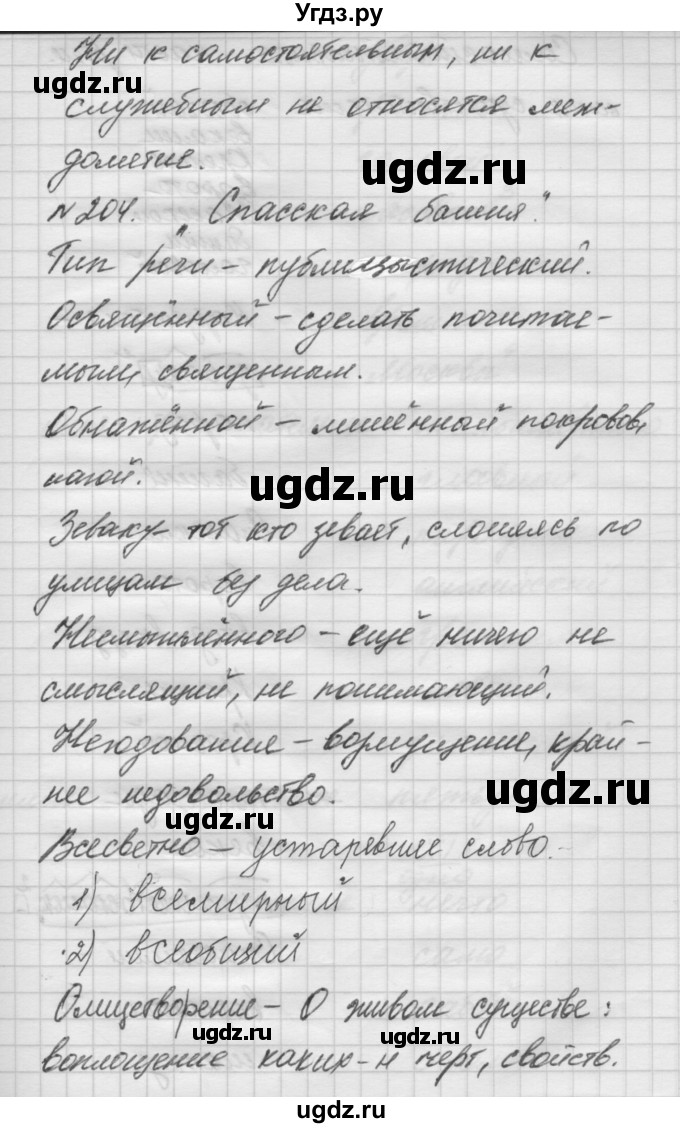 Угдз.ру
Ни к самостоятельным, ни к
ugdz.ru
служебным не относятся меж-
ugdz.ru
дометие.
№204. "Спасская башня".
Тип речи - публицыстический.
ugdz.ru
Освящённый - сделать почитае-
мым, священным.
Обнажённой - лишённый покровов,
нагой.
ugdz.ru
Зеваку - тот кто зевает, слоняясь по
улицам без дела.
ugdz.ru
Несмышлённого - ещё ничего не
смыслящий, не понимающий.
Негодования - возмущение, край-
нее недовольство.
ugdz.ru
ugdz.ru
Всесветно - устаревшее слово.
1) всемирный
2) всеобщий
Олицетворение - О живом существе:
ugdz.ru
воплощение каких-н черт, свойств.
ugdz.ru